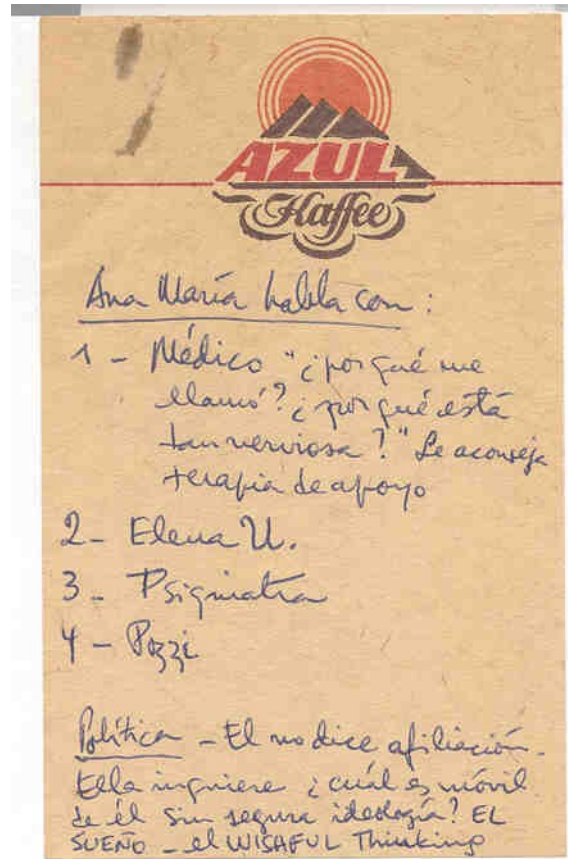 AZUL
Kaffee
Ana María habla con:
1 - Médico "¿por qué me
llamó? ¿por qué está
tan nerviosa?" Le aconseja
terapia de apoyo
2 - Elena U.
3 - Psiquiatra
4 - Pozzi
Política - El no dice afiliación.
Ella inquiere ¿cuál es móvil
de él sin segura ideología? EL
SUEÑO - el WISAFUL Thinking